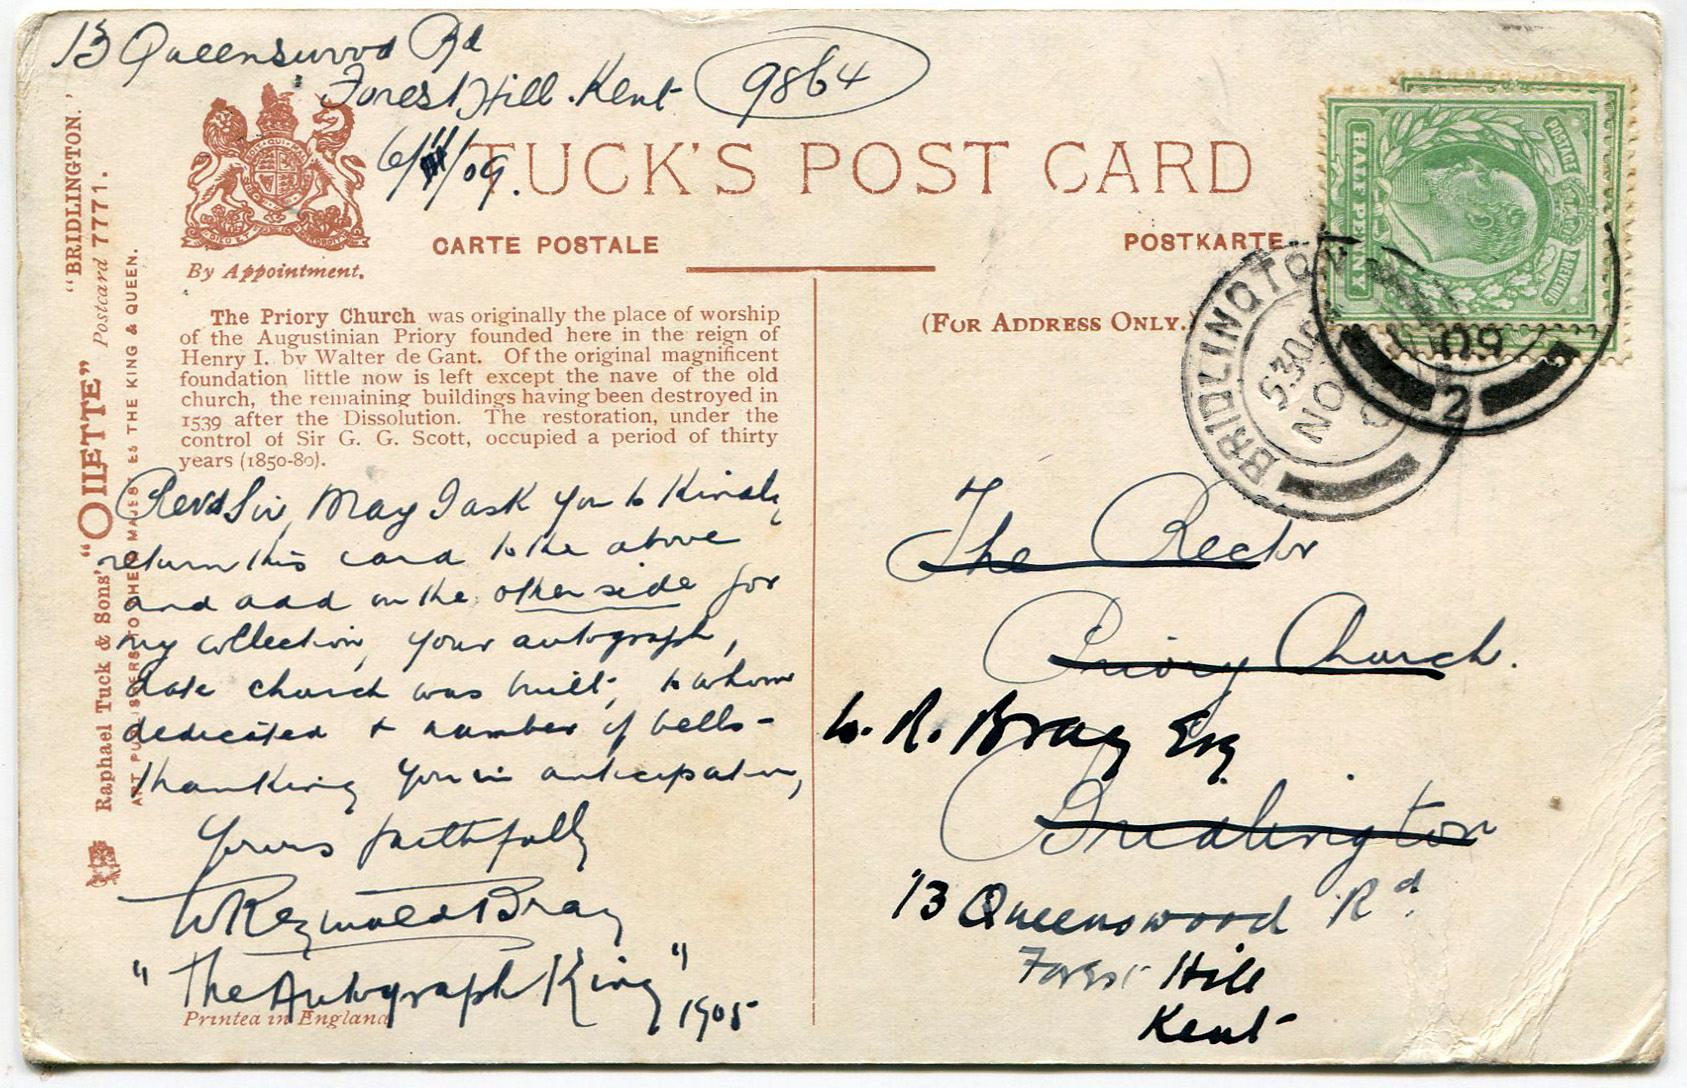 13 Queenswood Rd
Forest Hill. Kent
9864
6/11/09.
TUCK'S POST CARD
CARTE POSTALE
POSTKARTE
By Appointment.
(FOR ADDRESS ONLY.)
"BRIDLINGTON."
Postcard 7771.
Raphael Tuck & Sons' "OILETTE"
ART PUBLISHERS TO THEIR MAJESTIES THE KING & QUEEN.
The Priory Church was originally the place of worship
of the Augustinian Priory founded here in the reign of
Henry I. by Walter de Gant. Of the original magnificent
foundation little now is left except the nave of the old
church, the remaining buildings having been destroyed in
1539 after the Dissolution. The restoration, under the
control of Sir G. G. Scott, occupied a period of thirty
years (1850-80).
Revd Sir, May I ask you to kindly
return this card to the above
and add on the other side for
my collection, your autograph,
date church was built, to whom
dedicated + number of bells-
thanking you in anticipation,
Yours faithfully
W Reynolds Bray
"The Autograph King"
1905
Printed in England
POSTAGE & REVENUE
HALF PENNY
BRIDLINGTON
5 30 P
NO
09
2
The Rector
Priory Church.
W. R. Bray Esq
Bridlington
13 Queenswood Rd.
Forest Hill
Kent